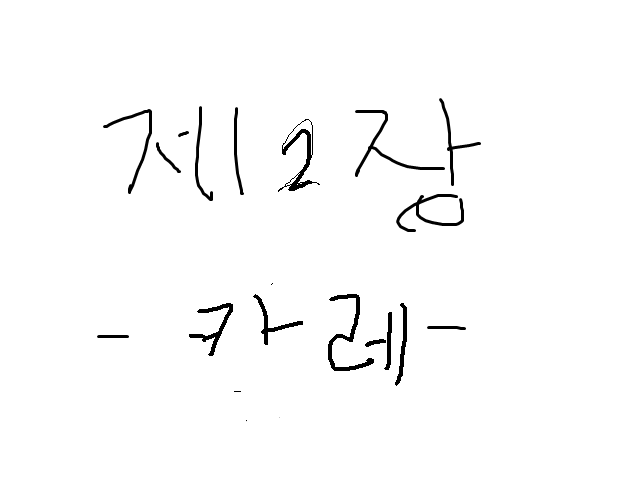 제2장
- 카레-